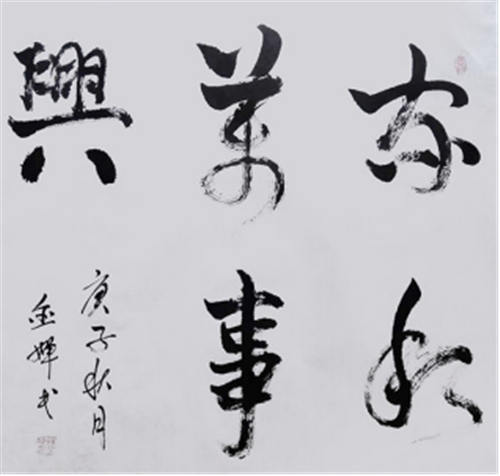 家和
萬事
興
庚子秋月
金輝书